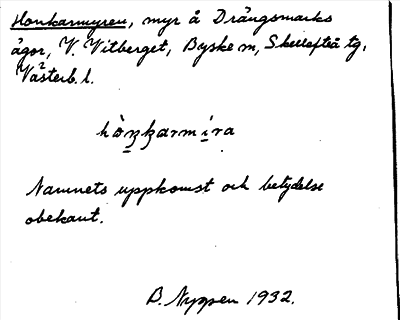 Honkarmyren, myr å Drängsmarks
ägor, V. Vitberget, Byske sn, Skellefteå tg,
Västerb. l.
Namnets uppkomst och betydelse
obekant.
B. Nyssen 1932.